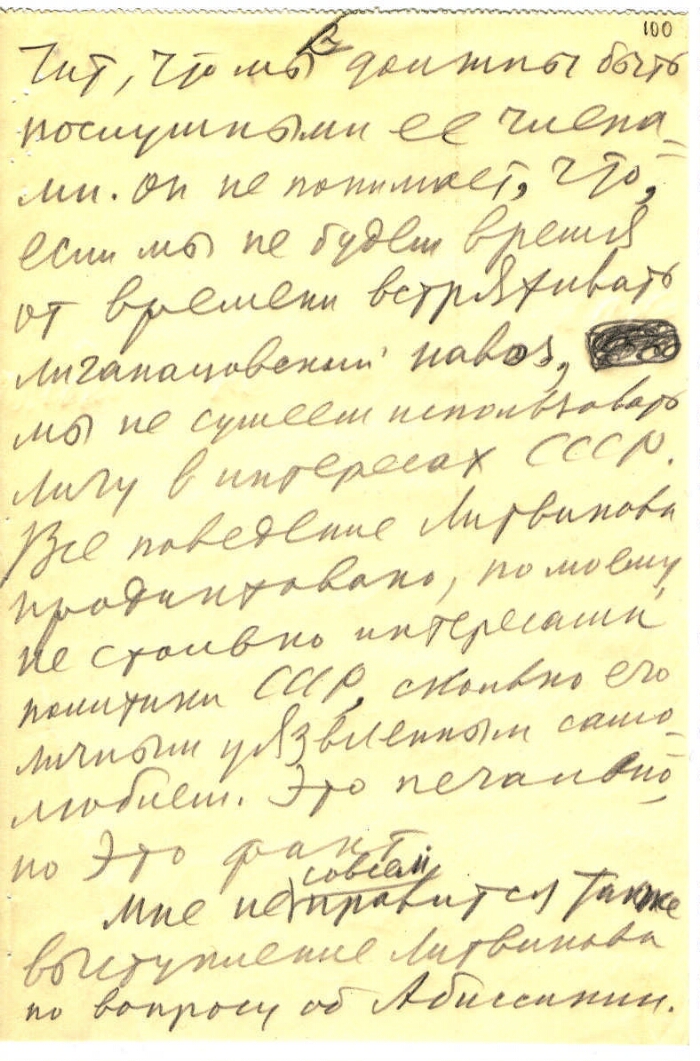 100
чит, что мы должны быть
послушными ее члена-
ми. Он не понимает, что,
если мы не будем время
от времени встряхивать
лиганацовский навоз,
мы не сумеем использовать
лигу в интересах СССР.
Все поведение Литвинова
продиктовано, по моему,
не столько интересами
политики СССР, сколько его
личным уязвленным само-
любием. Это печально,
но это факт.
Мне не совсем нравится также
выступление Литвинова
по вопросу об Абиссинии.